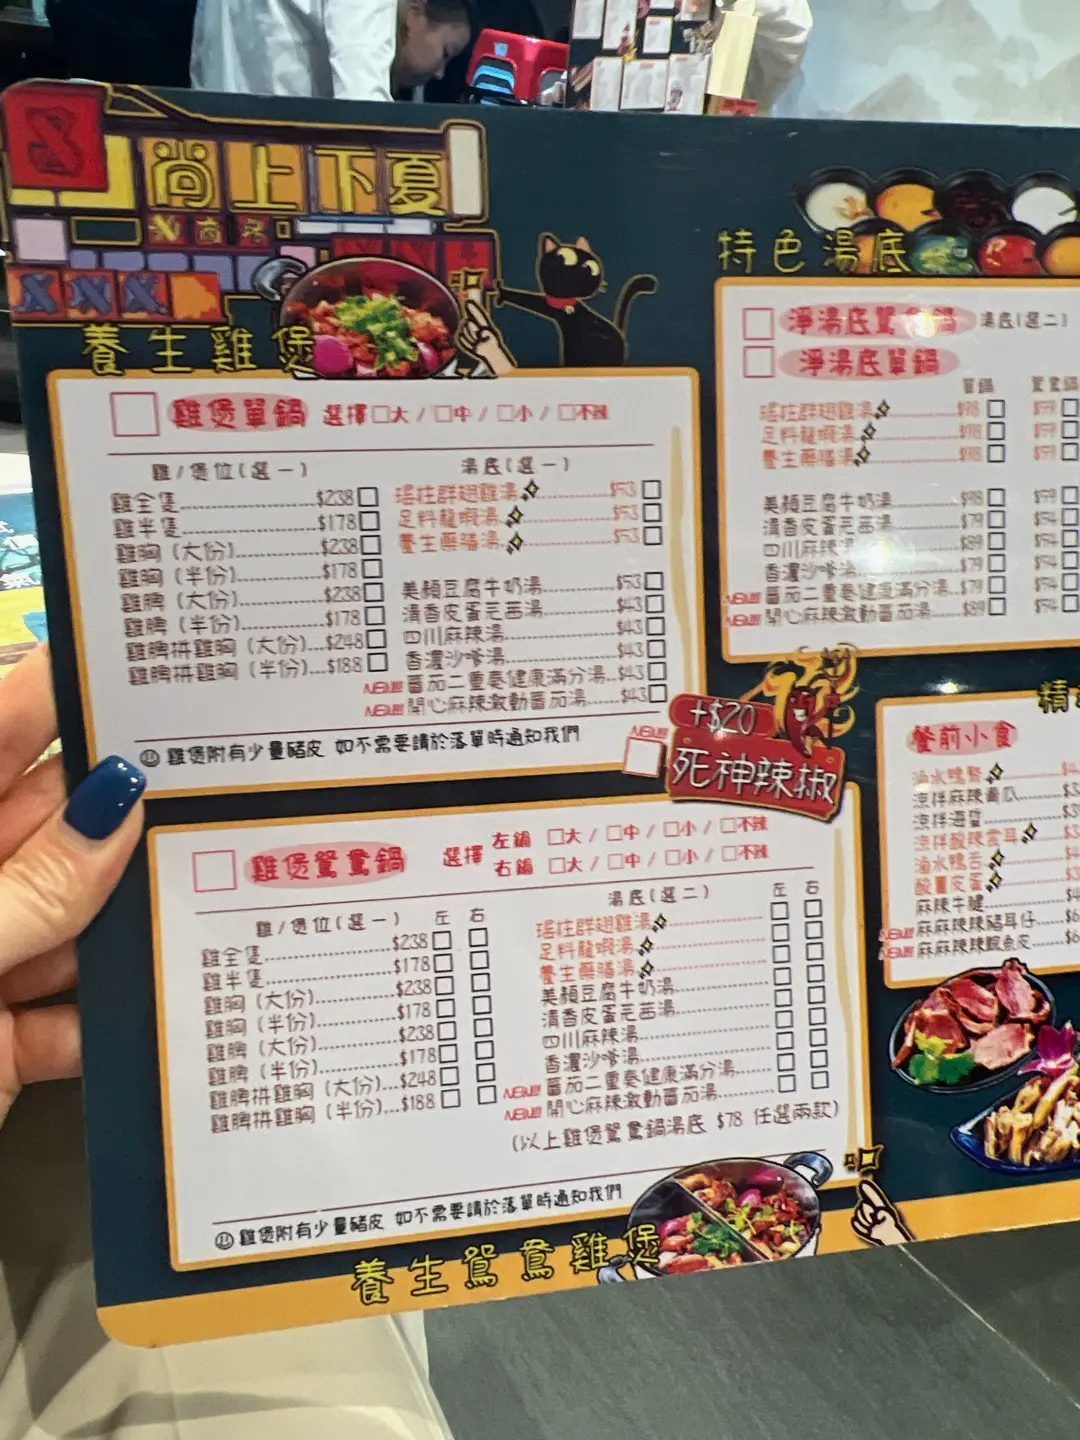 尚上下夏
養生雞煲
雞煲單鍋 選擇 大 / 中 / 小 / 不辣
雞/煲位(選一)
雞全隻 $238
雞半隻 $178
雞胸 (大份) $238
雞胸 (半份) $178
雞脾 (大份) $238
雞脾 (半份) $178
雞脾拼雞胸 (大份) $248
雞脾拼雞胸 (半份) $188
湯底(選一)
瑤柱群翅雞湯 $53
足料龍蝦湯 $53
養生藥膳湯 $53
美顏豆腐牛奶湯 $53
清香皮蛋芫茜湯 $43
四川麻辣湯 $43
香濃沙嗲湯 $43
NEW!!! 番茄二重奏健康滿分湯 $43
NEW!!! 開心麻辣激動番茄湯 $43
雞煲附有少量豬皮 如不需要請於落單時通知我們
NEW!!!
+$20
死神辣椒
雞煲鴛鴦鍋 選擇
左鍋 大 / 中 / 小 / 不辣
右鍋 大 / 中 / 小 / 不辣
雞/煲位(選一) 左 右
雞全隻 $238
雞半隻 $178
雞胸 (大份) $238
雞胸 (半份) $178
雞脾 (大份) $238
雞脾 (半份) $178
雞脾拼雞胸 (大份) $248
雞脾拼雞胸 (半份) $188
湯底(選二) 左 右
瑤柱群翅雞湯
足料龍蝦湯
養生藥膳湯
美顏豆腐牛奶湯
清香皮蛋芫茜湯
四川麻辣湯
香濃沙嗲湯
NEW!!! 番茄二重奏健康滿分湯
NEW!!! 開心麻辣激動番茄湯
(以上雞煲鴛鴦鍋湯底 $78 任選兩款)
雞煲附有少量豬皮 如不需要請於落單時通知我們
養生鴛鴦雞煲
特色湯底
淨湯底鴛鴦鍋 湯底(選二)
淨湯底單鍋
單鍋 鴛鴦鍋
瑤柱群翅雞湯 $98 $59
足料龍蝦湯 $98 $59
養生藥膳湯 $98 $59
美顏豆腐牛奶湯 $98 $59
清香皮蛋芫茜湯 $79 $54
四川麻辣湯 $89 $54
香濃沙嗲湯 $79 $54
NEW!!! 番茄二重奏健康滿分湯 $79 $54
NEW!!! 開心麻辣激動番茄湯 $89 $54
精
餐前小食
滷水鴨腎
涼拌麻辣青瓜
涼拌海蜇
涼拌酸辣雲耳
滷水鴨舌
酸薑皮蛋
麻辣牛腱
NEW!!! 麻麻辣辣豬耳仔
NEW!!! 麻麻辣辣鯇魚皮